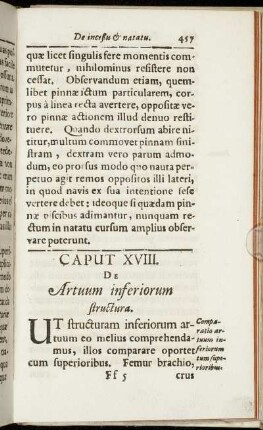 De incessu & natatu. 457
quæ licet singulis fere momentis com-
mutetur, nihilominus resistere non
cessat. Observandum etiam, quem-
libet pinnæ ictum particularem, cor-
pus à linea recta avertere, oppositæ ve-
ro pinnæ actionem illud denuo resti-
tuere. Quando dextrorsum abire ni-
titur, multum commovet pinnam sini-
stram, dextram vero parum admo-
dum, eo prorsus modo quo nauta per-
petuo agit remos oppositos illi lateri,
in quod navis ex sua intentione sese
vertere debet: ideoque si quædam pin-
næ piscibus adimantur, nunquam re-
ctum in natatu cursum amplius obser-
vare poterunt.
CAPUT XVIII.
DE
Artuum inferiorum
structura.
UT structuram inferiorum ar-
tuum eo melius comprehenda-
mus, illos comparare oportet
cum superioribus. Femur brachio,
Ff 5 crus
Compa-
ratio ar-
tuum in-
feriorum
cum supe-
rioribus.